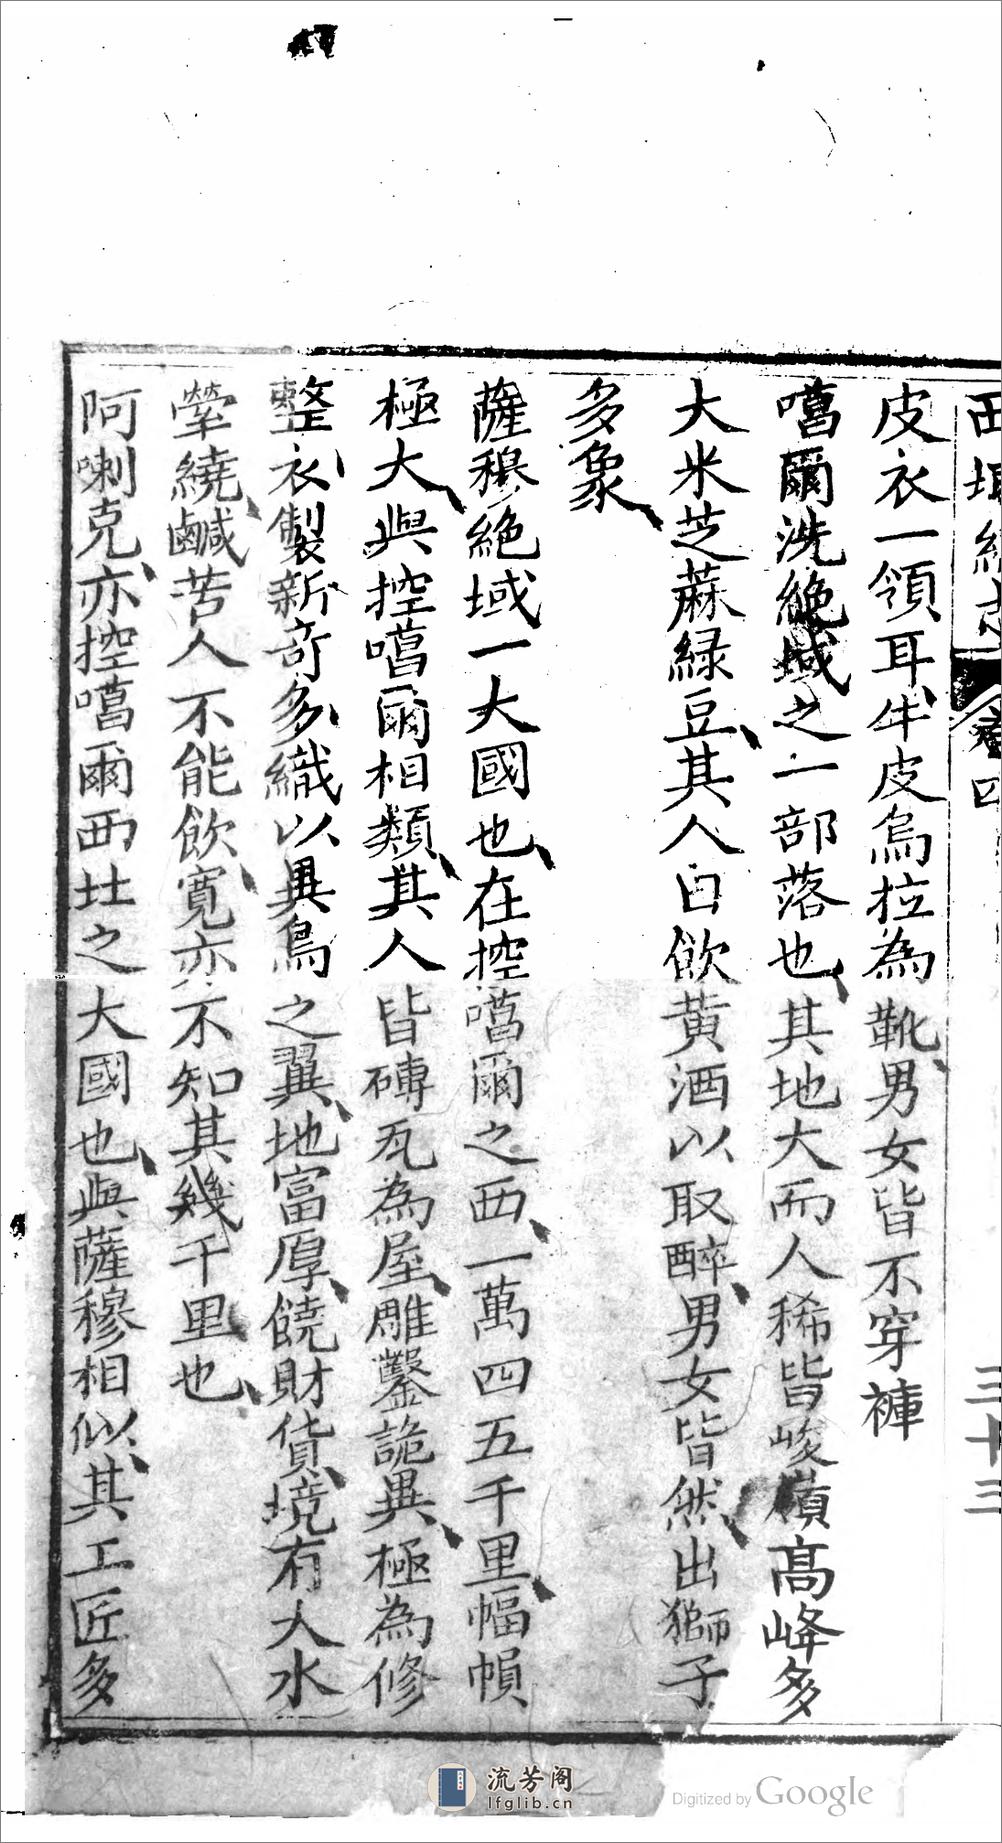 西域
卷四
三十三
皮衣一領耳牛皮烏拉為靴男女皆不穿褲
噶爾洗絶域之一部落也其地大而人稀皆峻嶺髙峰多
大米芝蔴緑豆其人白飲黄酒以取醉男女皆然出獅子
多象
薩穆絶域一大國也在控噶爾之西一萬四五千里幅幀
極大與控噶爾相類其人皆磚瓦為屋雕鑿詭異極為修
整衣製新奇多織以異鳥之翼地富厚饒財貨境有大水
縈繞鹹苦人不能飲寛亦不知其幾千里也
阿喇克亦控噶爾西北之大國也與薩穆相似其工匠多
流芳阁
lfglib.cn
Digitized by Google